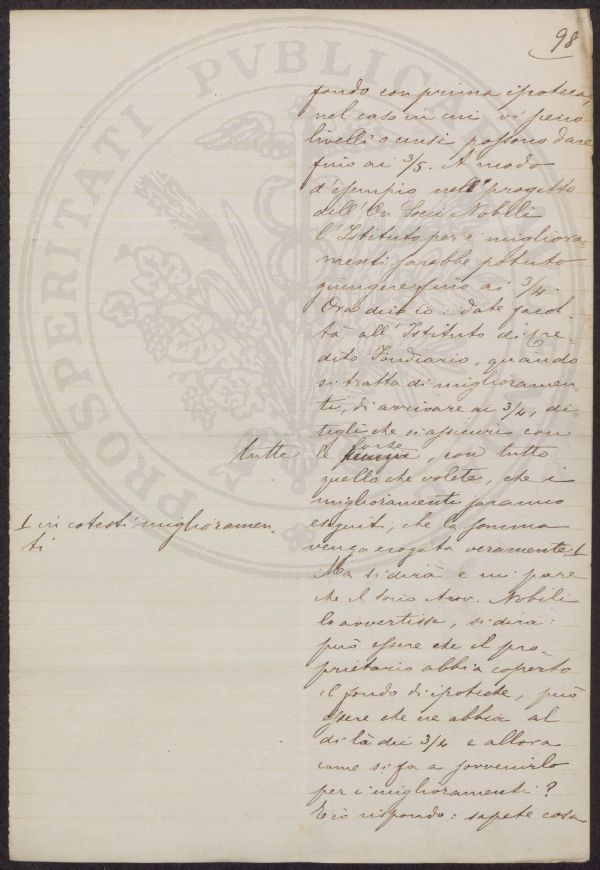 98
fondo con prima ipoteca,
nel caso in cui vi sieno
livelli o censi possono dare
fino ai 3/5. A modo
d'esempio nell' progetto
dell' On. Socio Nobili
l'Istituto per i migliora
menti sarebbe potuto
giungere fino ai 3/4.
Ora dico io: date facol-
tà all'Istituto di Cre-
dito Fondiario, quando
si tratta di miglioramen-
ti, di arrivare ai 3/4, di-
tegli che si assicuri con
tutte le forse, con tutto
quello che volete, che i
miglioramenti saranno
eseguiti, che la somma
venga erogata veramente ⊥
⊥ in cotesti miglioramen-
ti
Ma si dirà e mi pare
che il Socio Avv. Nobili
lo avvertisse, si dirà:
può essere che il pro-
prietario abbia coperto
il fondo di ipoteche, può
essere che ne abbia al
di là dei 3/4 e allora
come si fa a sovvenirlo
per i miglioramenti?
E io rispondo: sapete cosa
PROSPERITATI PVBLICAE